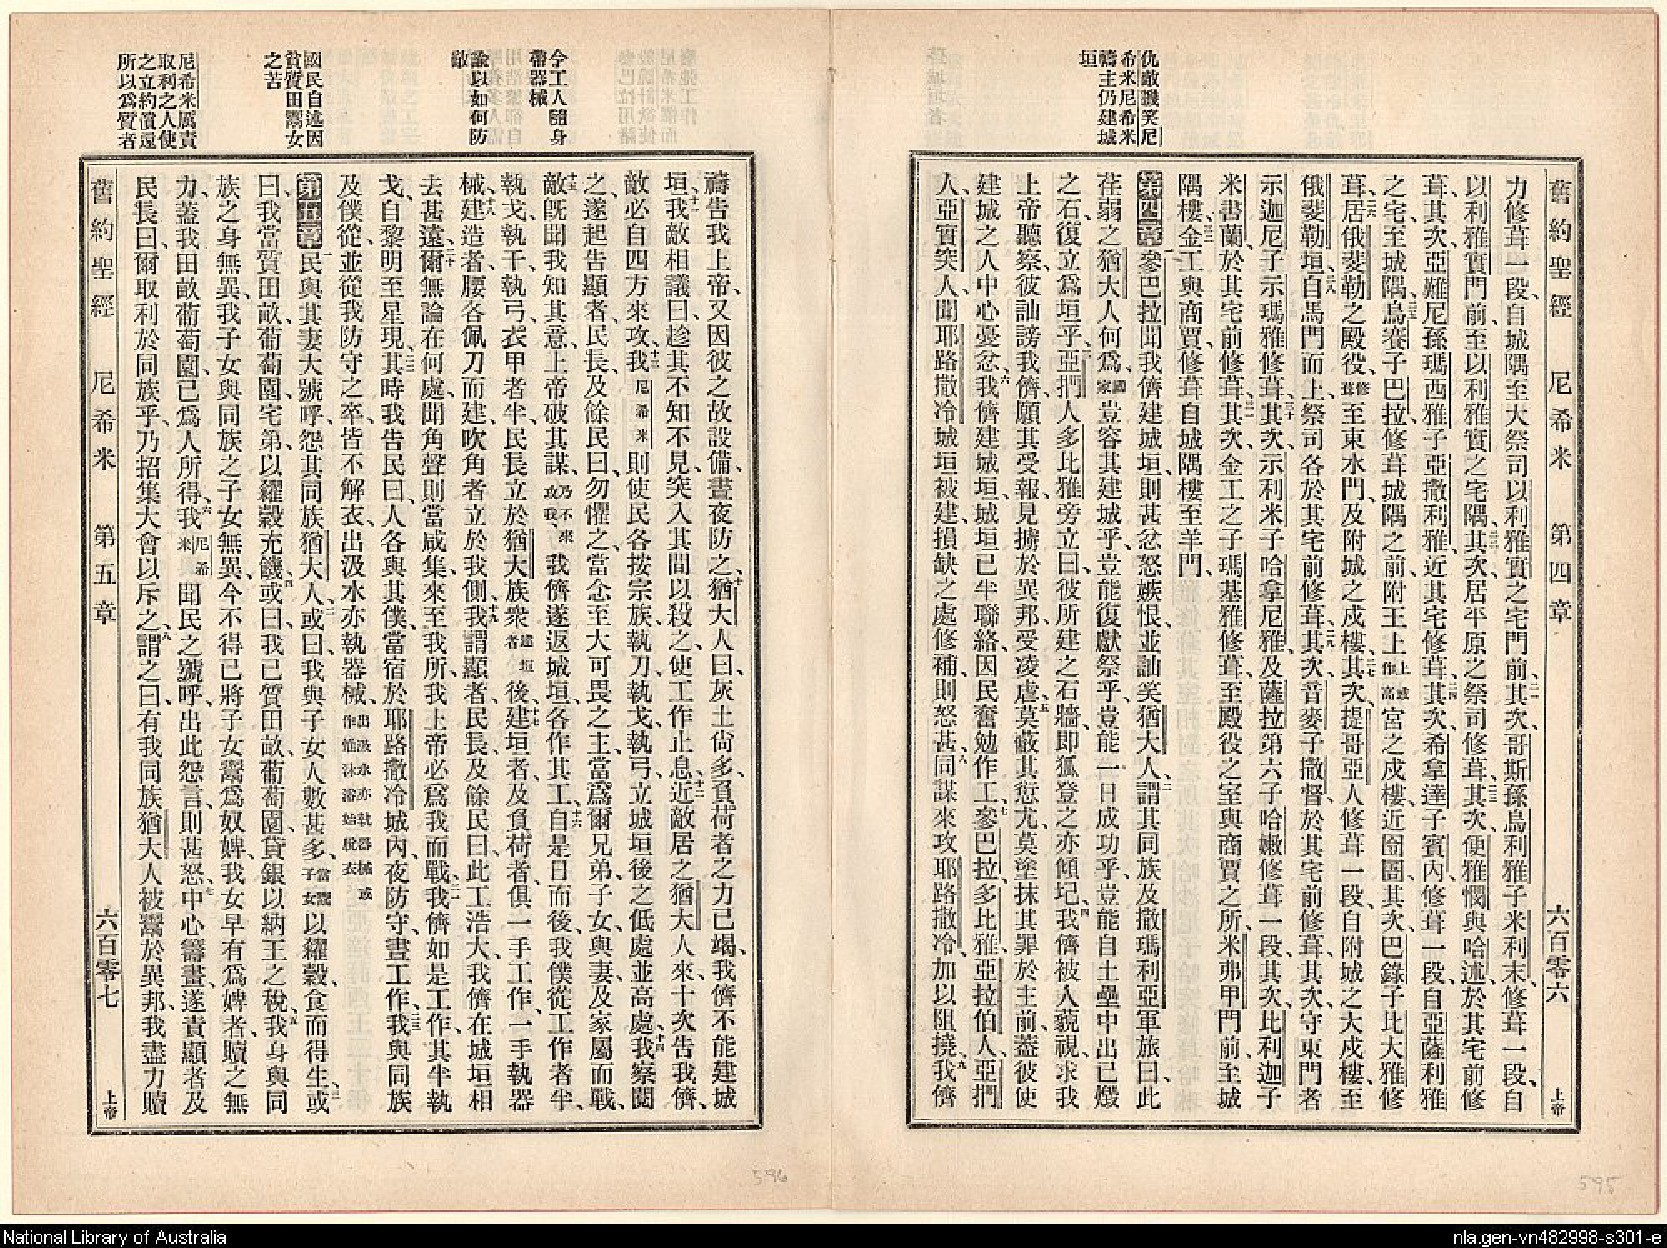 舊約聖經 尼希米 第四章 六百零六 上帝
仇敵譏笑尼
希米尼希米
禱主仍建城
垣
力修葺一段自城隅至大祭司以利雅實之宅門前其次哥斯孫烏利雅子米利末修葺一段自
以利雅實門前至以利雅實之宅隅其次居平原之祭司修葺其次便雅憫與哈述於其宅前修
葺其次亞難尼孫瑪西雅子亞撒利雅近其宅修葺其次希拿達子賓內修葺一段自亞薩利雅
之宅至城隅烏賽子巴拉修葺城隅之前附王上宮之戍樓近囹圄其次巴錄子比大雅修
葺居俄斐勒之殿役修葺至東水門及附城之戍樓其次提哥亞人修葺一段自附城之大戍樓至
俄斐勒垣自馬門而上祭司各於其宅前修葺其次音麥子撒督於其宅前修葺其次守東門者
示迦尼子示瑪雅修葺其次示利米子哈拿尼雅及薩拉第六子哈嫩修葺一段其次比利迦子
米書蘭於其宅前修葺其次金工之子瑪基雅修葺至殿役之室與商賈之所米弗甲門前至城
隅樓金工與商賈修葺自城隅樓至羊門
第四章 參巴拉聞我儕建城垣則甚忿怒嫉恨並訕笑猶大人謂其同族及撒瑪利亞軍旅曰此
荏弱之猶大人何爲國家豈容其建城乎豈能復獻祭乎豈能一日成功乎豈能自土壘中出已燬
之石復立爲垣乎亞捫人多比雅旁立曰彼所建之石牆卽狐登之亦傾圮我儕被人藐視求我
上帝聽察彼訕謗我儕願其受報見擄於異邦受凌虐莫蔽其愆尤莫塗抹其罪於主前蓋彼使
建城之人中心憂忿我儕建城垣城垣已半聯絡因民奮勉作工參巴拉多比雅亞拉伯人亞捫
人亞實突人聞耶路撒冷城垣被建損缺之處修補則怒甚同謀來攻耶路撒冷加以阻撓我儕
令工人隨身
帶器械
諭以如何防
敵
國民自述因
貧質田鬻女
之苦
尼希米厲責
取利之人使
之立約償還
所以爲質者
禱告我上帝又因彼之故設備晝夜防之猶大人曰灰土尙多負荷者之力已竭我儕不能建城
垣我敵相議曰趁其不知不見突入其間以殺之使工作止息近敵居之猶大人來十次告我儕
敵必自四方來攻我尼希米則使民各按宗族執刀執戈執弓立城垣後之低處並高處我察閱
之遂起告顯者民長及餘民曰勿懼之當念至大可畏之主當爲爾兄弟子女與妻及家屬而戰
敵旣聞我知其意上帝破其謀乃不來攻我我儕遂返城垣各作其工自是日而後我僕從工作者半
執戈執干執弓衣甲者半民長立於猶大族衆建垣者後建垣者及負荷者俱一手工作一手執器
械建造者腰各佩刀而建吹角者立於我側我謂顯者民長及餘民曰此工浩大我儕在城垣相
去甚遠爾無論在何處聞角聲則當咸集來至我所我上帝必爲我而戰我儕如是工作其半執
戈自黎明至星現其時我告民曰人各與其僕當宿於耶路撒冷城內夜防守晝工作我與同族
及僕從並從我防守之卒皆不解衣出汲水亦執器械出汲水亦執器械或作値沐浴始脫衣
第五章 民與其妻大號呼怨其同族猶大人或曰我與子女人數甚多當鬻子女以糴穀食而得生或
曰我當質田畝葡萄園宅第以糴穀充饑或曰我已質田畝葡萄園貸銀以納王之稅我身與同
族之身無異我子女與同族之子女無異今不得已將子女鬻爲奴婢我女早有爲婢者贖之無
力蓋我田畝葡萄園已爲人所得我尼希米聞民之號呼出此怨言則甚怒中心籌畫遂責顯者及
民長曰爾取利於同族乎乃招集大會以斥之謂之曰有我同族猶大人被鬻於異邦我盡力贖
舊約聖經 尼希米 第五章 六百零七 上帝
596
595
National Library of Australia
nla.gen-vn482998-s301-e